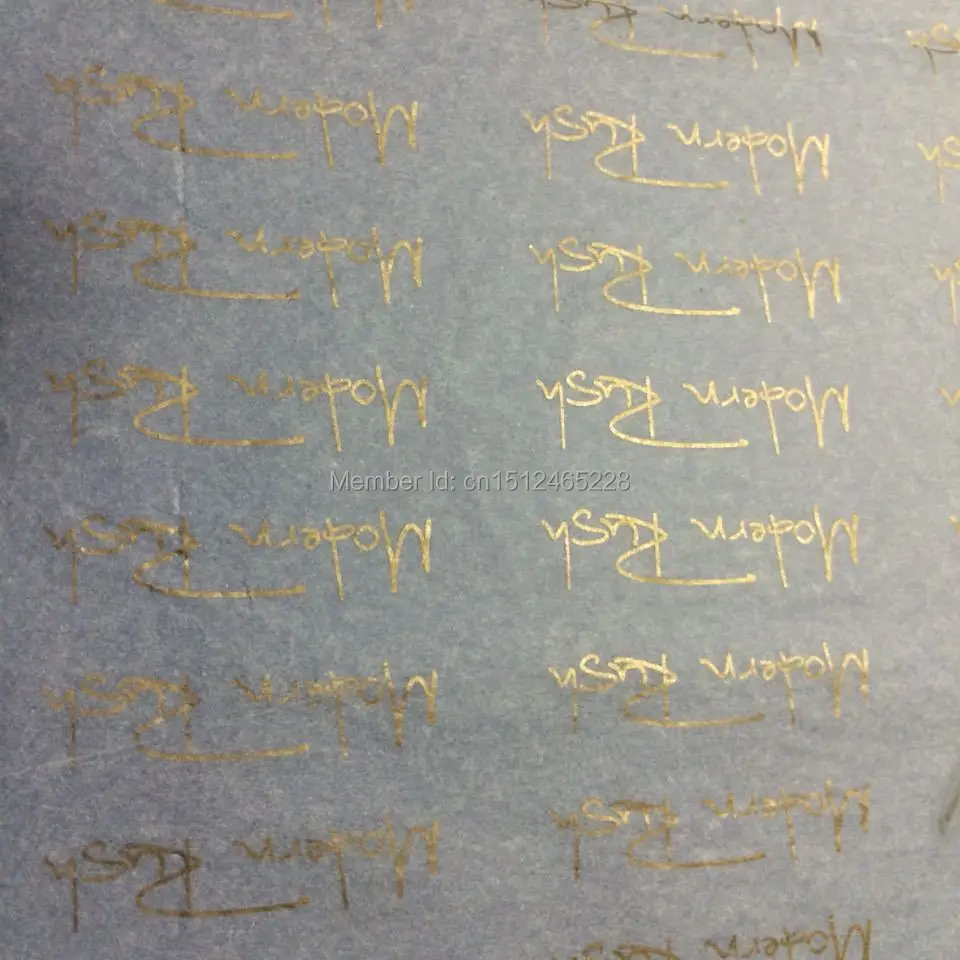 Modern Rush
Modern Rush Modern Rush
Modern Rush Modern Rush
Modern Rush Modern Rush
Member Id: cn1512465228
Modern Rush Modern Rush
Modern Rush Modern Rush
Modern Rush Modern Rush
Modern Rush